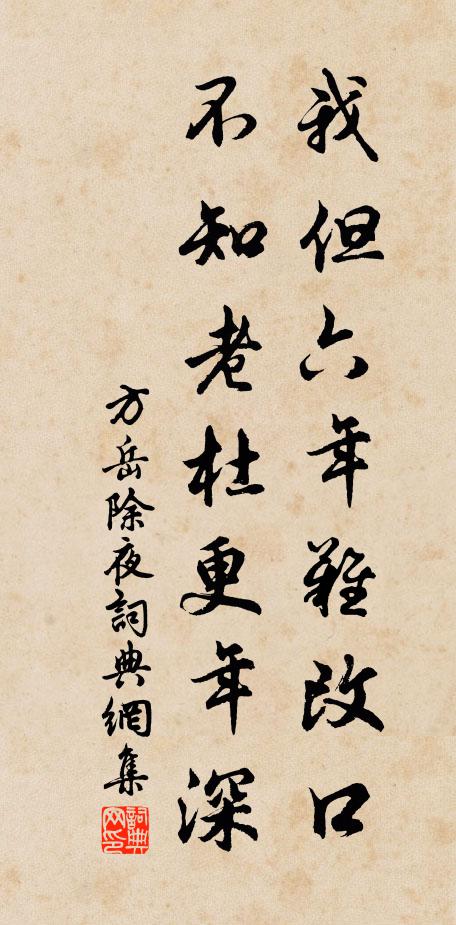 我但六年難改口
不知老杜更年深
方岳除夜詞典網集
詞典网印